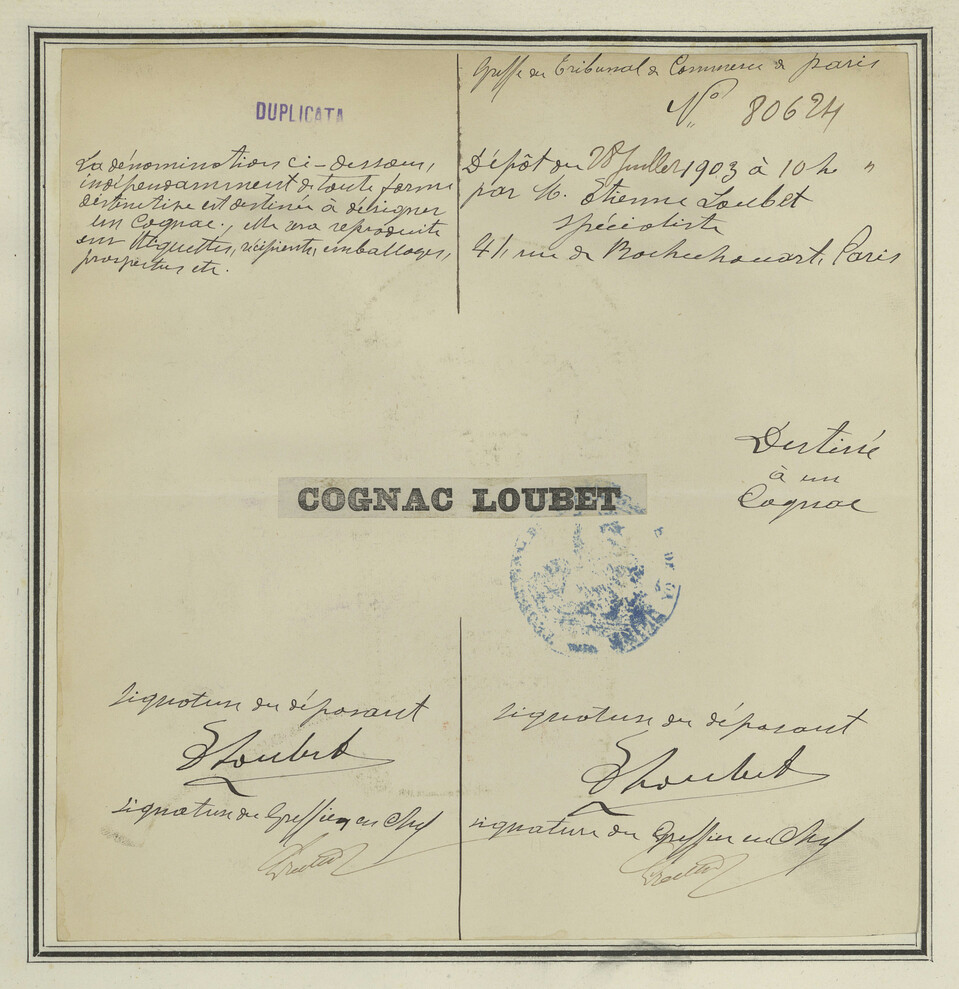 DUPLICATA
La dénomination ci-dessous,
indépendamment de toute forme
distinctive est destinée à désigner
un Cognac, elle sera reproduite
sur étiquettes, récipients, emballages,
prospectus etc.
Greffe du Tribunal de Commerce de Paris
No 80624
Dépôt du 28 Juillet 1903 à 10 h "
par M. Etienne Loubet
spécialiste
41, rue de Rochechouart, Paris
COGNAC LOUBET
Destiné
à un
Cognac
signature du déposant
E Loubet
signature du Greffier en Chef
signature du déposant
E Loubet
signature du Greffier en Chef